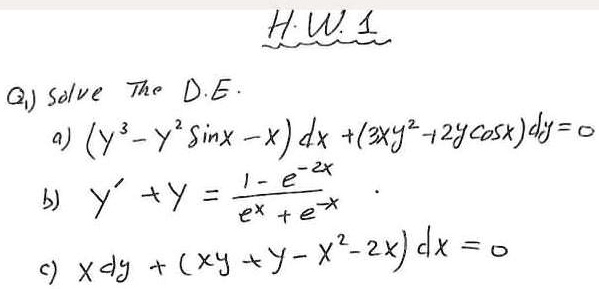 H.W.1
Q1) Solve The D.E.
a) (y³ - y² Sinx - x) dx + (3xy² + 2y cosx) dy = 0
b) y′ + y = (1 - e^-2x) / (e^x + e^-x) .
c) x dy + (xy + y - x² - 2x) dx = 0